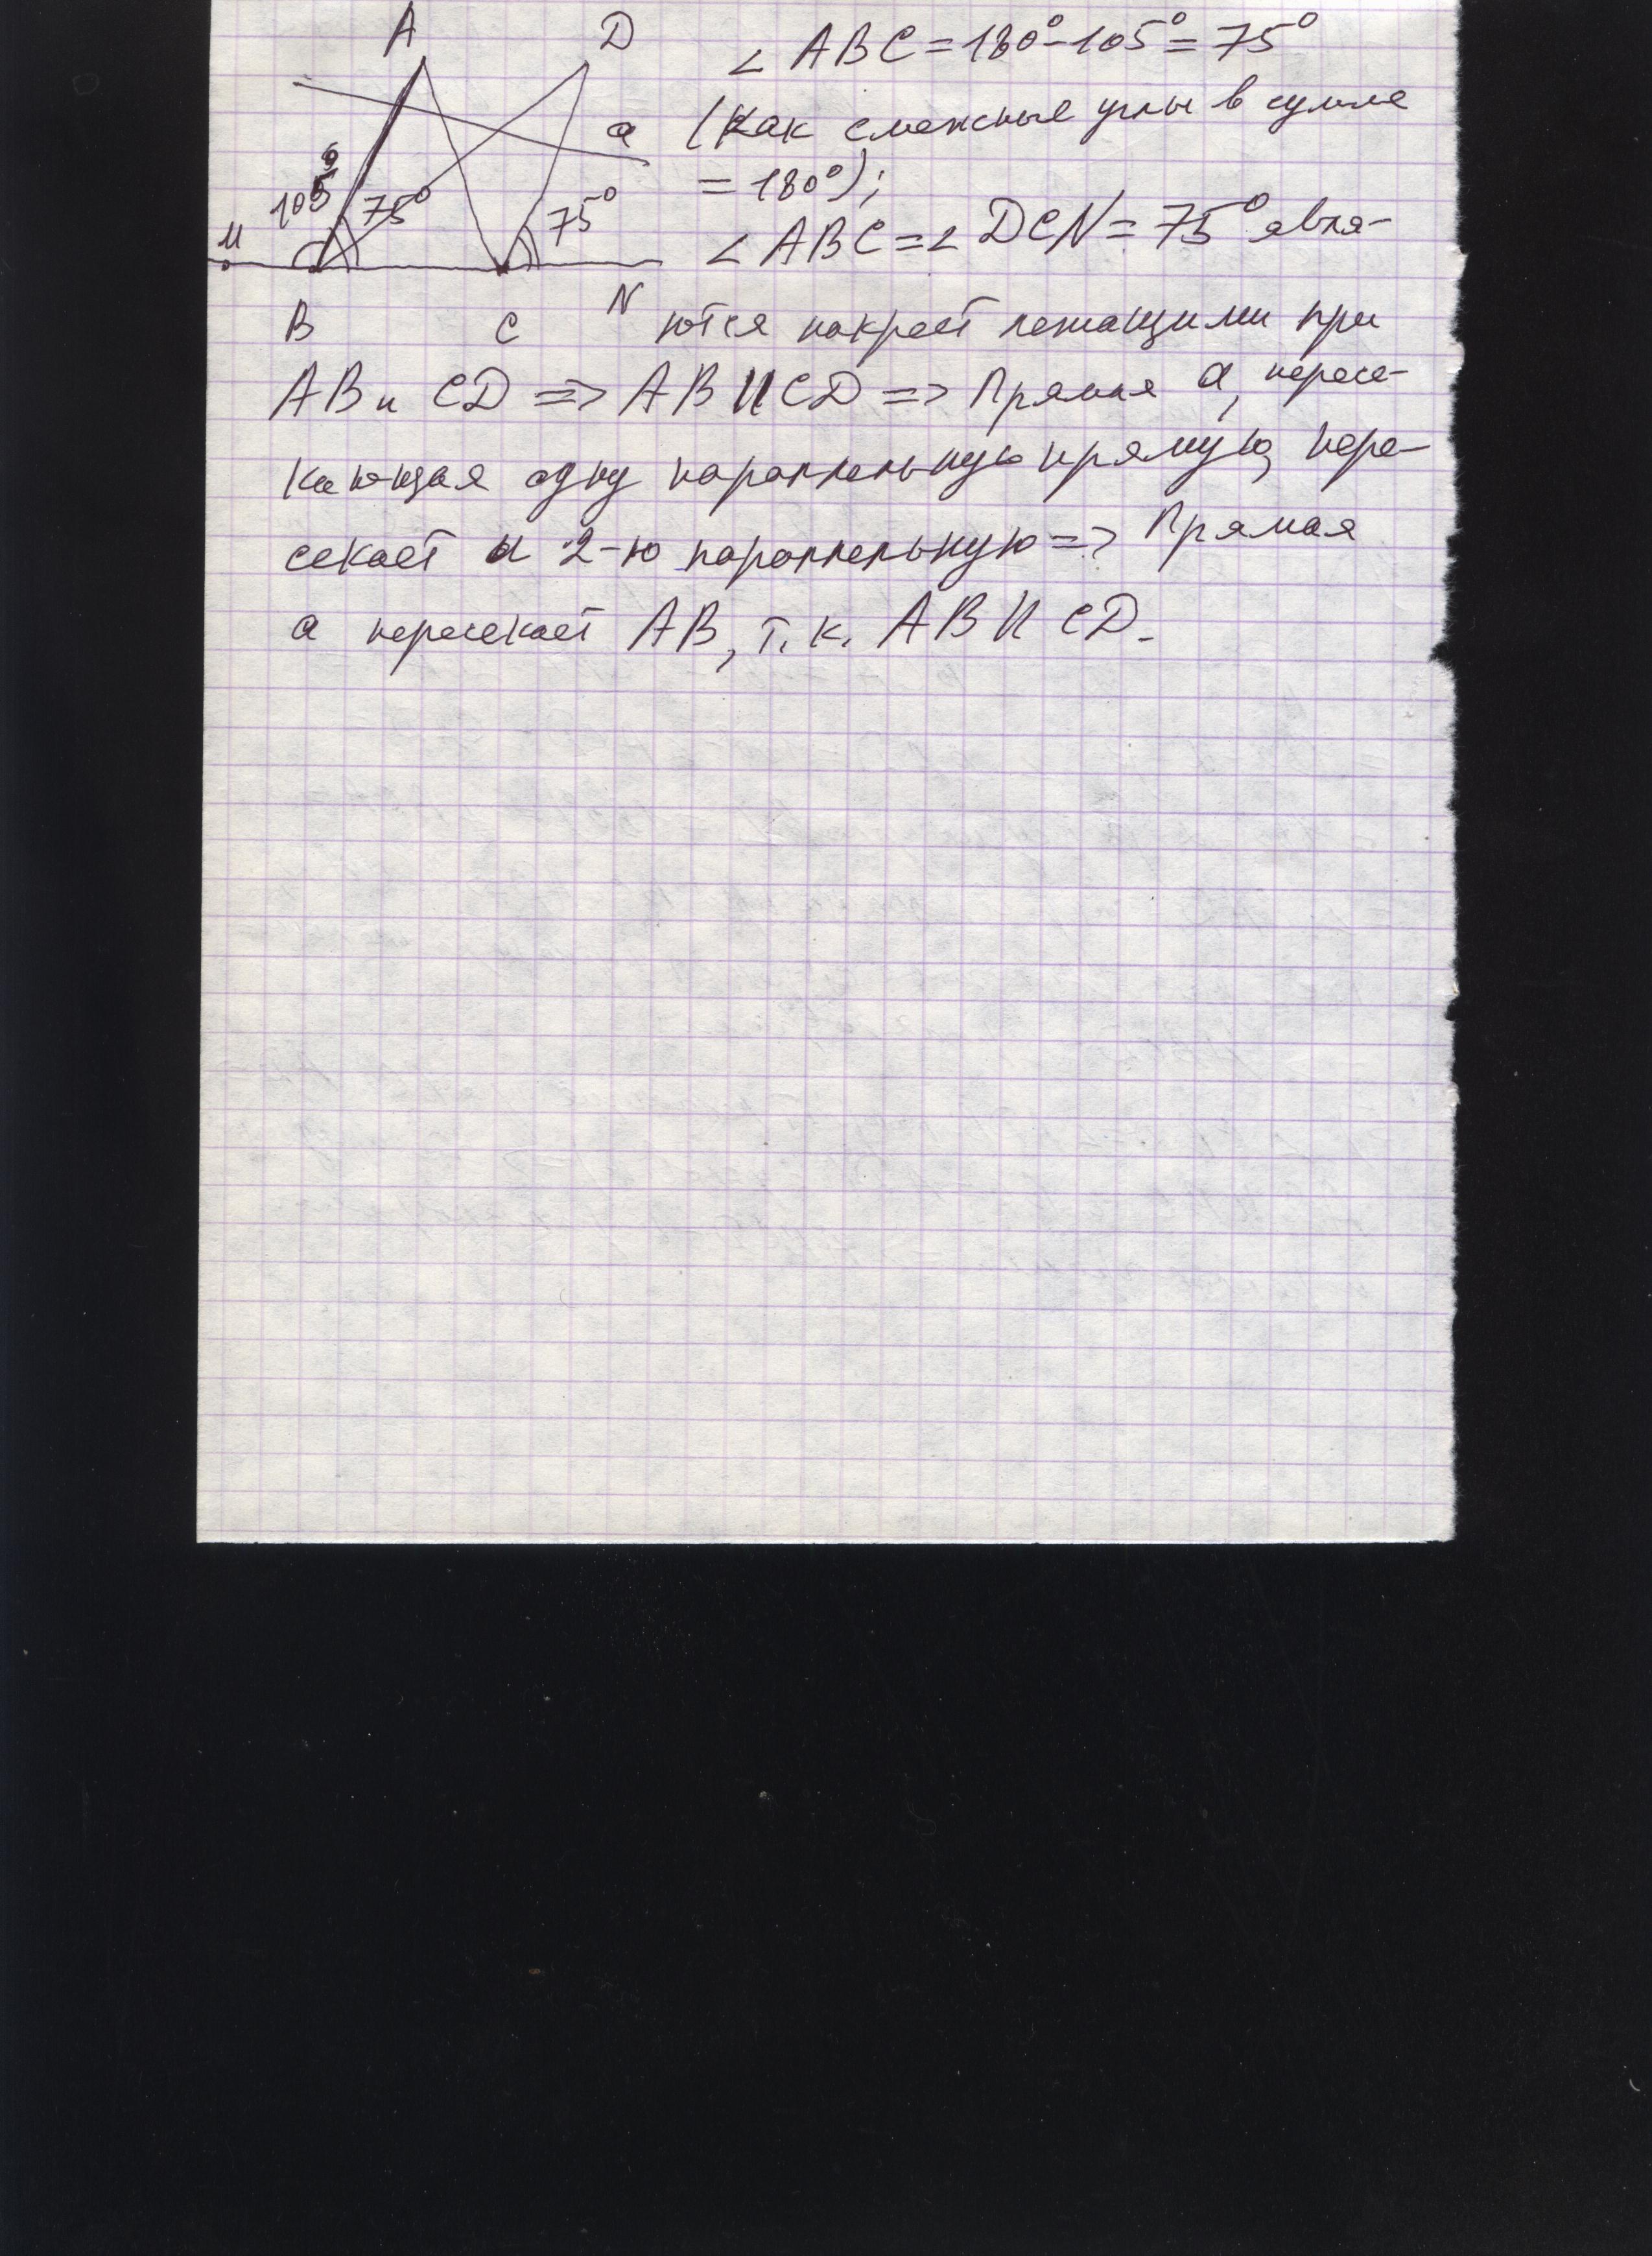 A D
∠ABC=180°-105°=75°
a
(как смежные углы в сумме
=180°);
105° 75° 75°
∠ABC=∠DCN=75° явля-
M
B C N
ются накрест лежащими при
AB и CD => AB || CD => Прямая a, пересе-
кающая одну параллельную прямую, пере-
секает и 2-ю параллельную => Прямая
a пересекает AB, т.к. AB || CD.